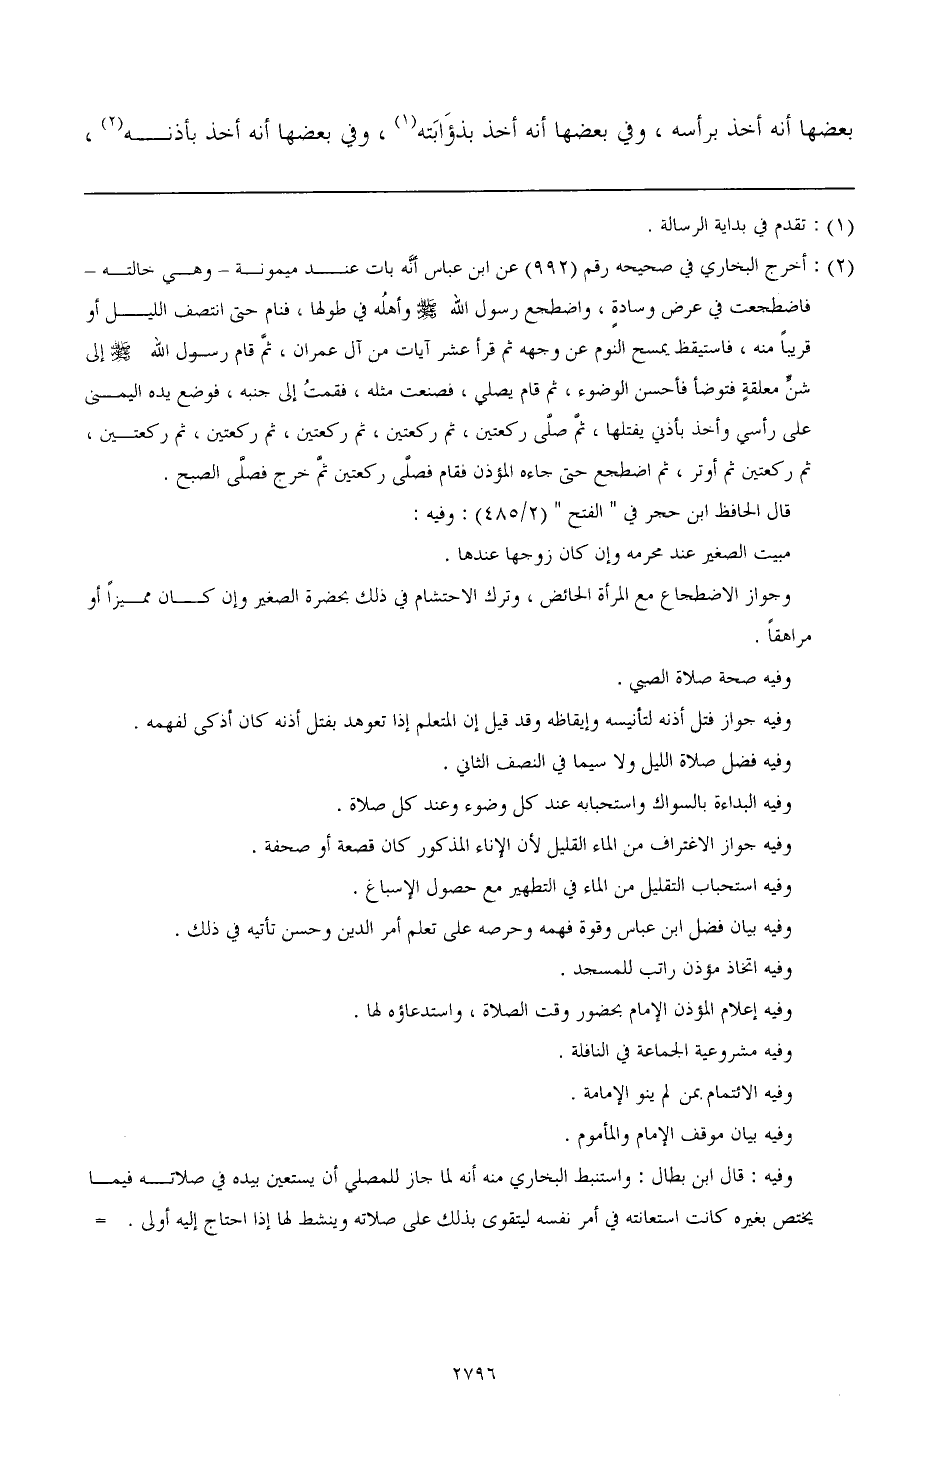 بعضها أنه أخذ برأسه ، وفي بعضها أنه أخذ بذؤَابَته(١) ، وفي بعضها أنه أخذ بأذنه(٢) ،
(١) : تقدم في بداية الرسالة .
(٢) : أخرج البخاري في صحيحه رقم (٩٩٢) عن ابن عباس أنَّه بات عند ميمونة – وهي خالته –
فاضطجعت في عرض وسادةٍ ، واضطجع رسول الله ﷺ وأهلُه في طولها ، فنام حتى انتصف الليل أو
قريباً منه ، فاستيقظ يمسح النوم عن وجهه ثم قرأ عشر آيات من آل عمران ، ثمَّ قام رسول الله ﷺ إلى
شنٍّ معلقةٍ فتوضأ فأحسن الوضوء ، ثم قام يصلي ، فصنعت مثله ، فقمتُ إلى جنبه ، فوضع يده اليمنى
على رأسي وأخذ بأذني يفتلها ، ثمَّ صلَّى ركعتين ، ثم ركعتين ، ثم ركعتين ، ثم ركعتين ، ثم ركعتين ،
ثم ركعتين ثم أوتر ، ثم اضطجع حتى جاءه المؤذن فقام فصلَّى ركعتين ثمَّ خرج فصلَّى الصبح .
قال الحافظ ابن حجر في " الفتح " (٤٨٥/٢) : وفيه :
مبيت الصغير عند محرمه وإن كان زوجها عندها .
وجواز الاضطحاع مع المرأة الحائض ، وترك الاحتشام في ذلك بحضرة الصغير وإن كان مميزاً أو
مراهقاً .
وفيه صحة صلاة الصبي .
وفيه جواز فتل أذنه لتأنيسه وإيقاظه وقد قيل إن المتعلم إذا تعوهد بفتل أذنه كان أذكى لفهمه .
وفيه فضل صلاة الليل ولا سيما في النصف الثاني .
وفيه البداءة بالسواك واستحبابه عند كل وضوء وعند كل صلاة .
وفيه جواز الاغتراف من الماء القليل لأن الإناء المذكور كان قصعة أو صحفة .
وفيه استحباب التقليل من الماء في التطهير مع حصول الإسباغ .
وفيه بيان فضل ابن عباس وقوة فهمه وحرصه على تعلم أمر الدين وحسن تأتيه في ذلك .
وفيه اتخاذ مؤذن راتب للمسجد .
وفيه إعلام المؤذن الإمام بحضور وقت الصلاة ، واستدعاؤه لها .
وفيه مشروعية الجماعة في النافلة .
وفيه الائتمام بمن لم ينو الإمامة .
وفيه بيان موقف الإمام والمأموم .
وفيه : قال ابن بطال : واستنبط البخاري منه أنه لما جاز للمصلي أن يستعين بيده في صلاته فيما
يختص بغيره كانت استعانته في أمر نفسه ليتقوى بذلك على صلاته وينشط لها إذا احتاج إليه أولى . =
٢٧٩٦